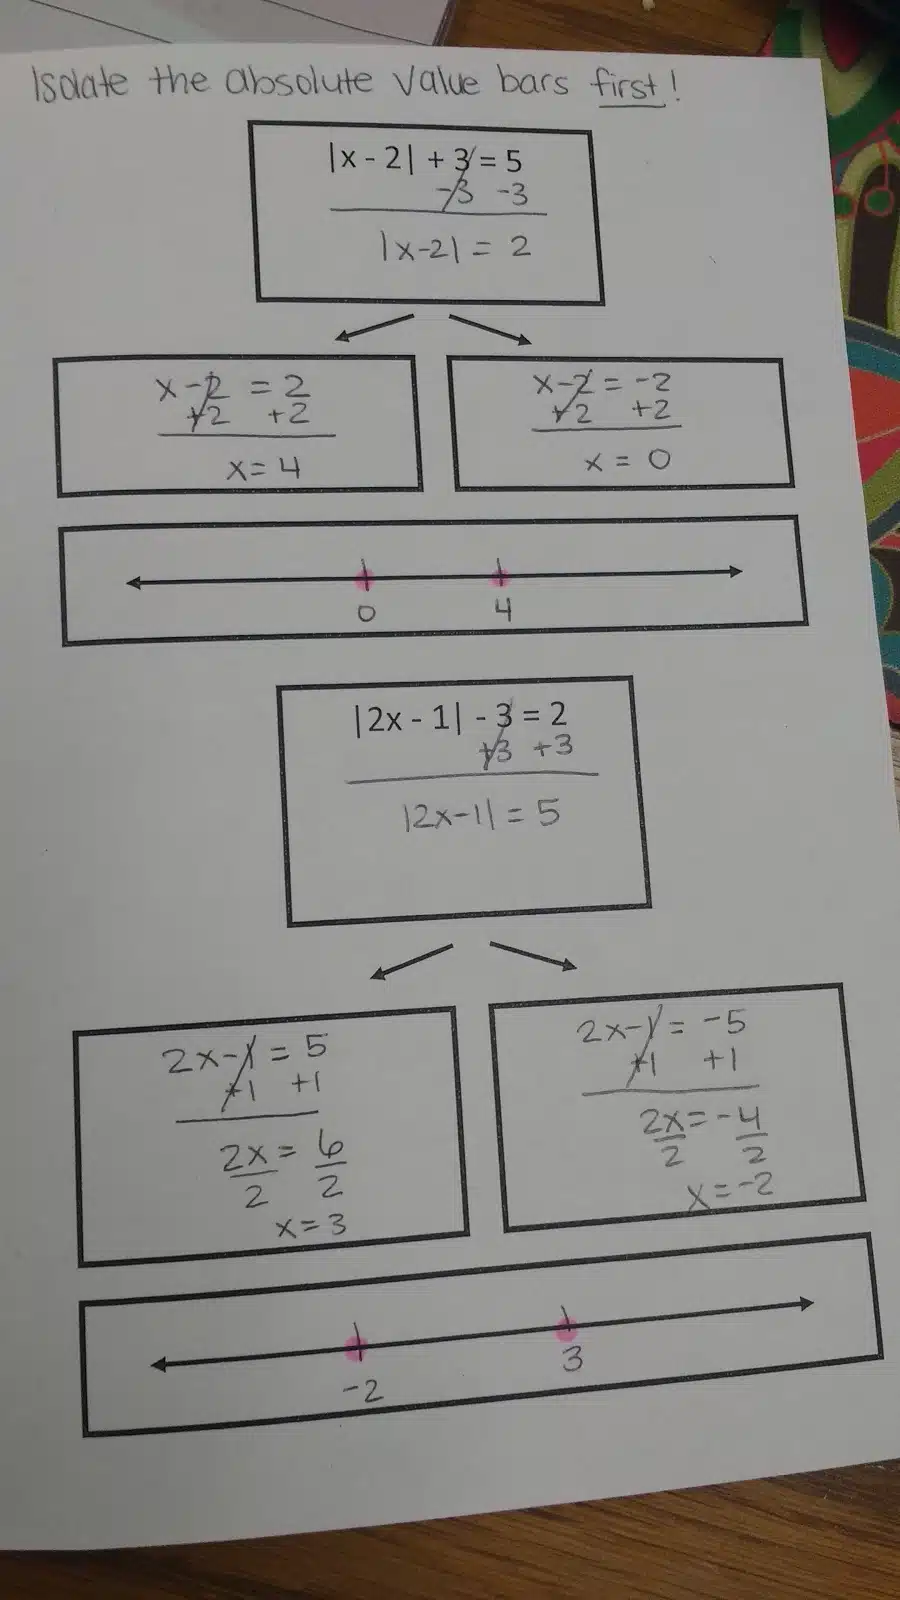 Isolate the absolute value bars first!
|x - 2| + 3 = 5
-3 -3
|x-2| = 2
x-2 = 2
+2 +2
x = 4
x-2 = -2
+2 +2
x = 0
0 4
|2x - 1| - 3 = 2
+3 +3
|2x-1| = 5
2x-1 = 5
+1 +1
2x = 6
2 2
x = 3
2x-1 = -5
+1 +1
2x = -4
2 2
x = -2
-2 3